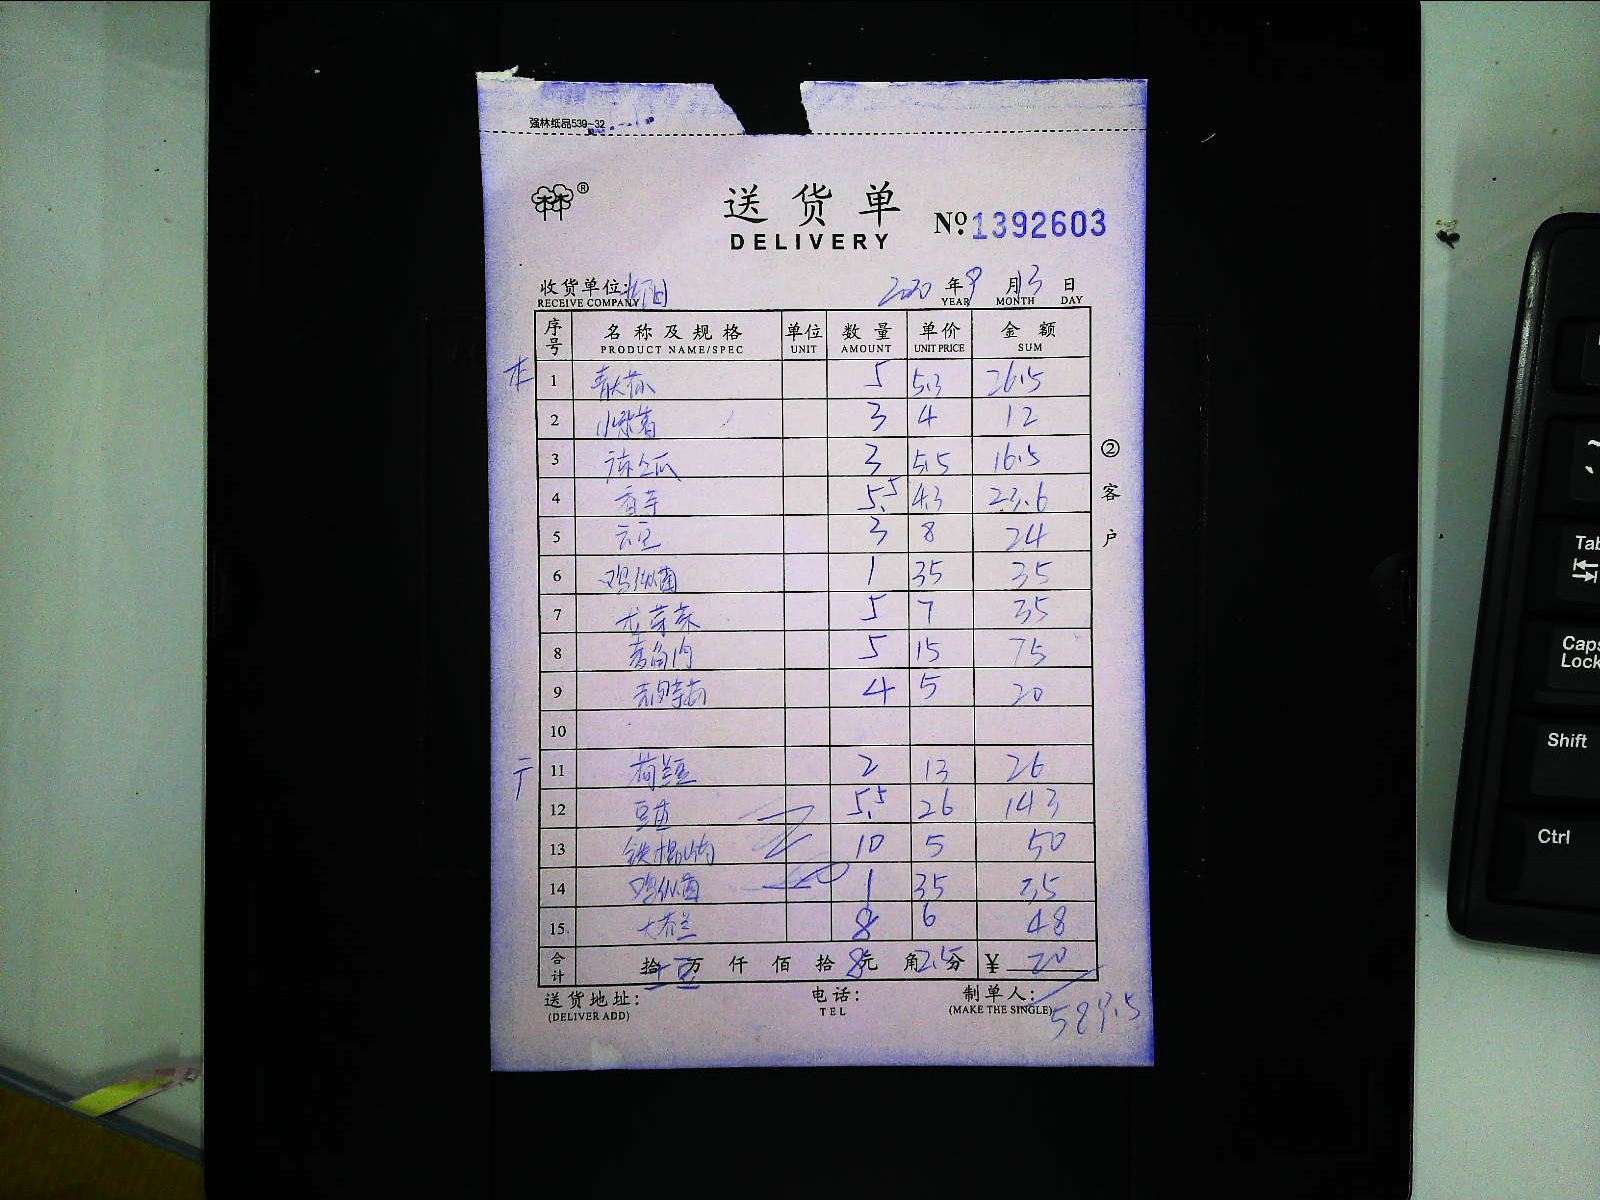 强林纸品539-32
®
送货单
DELIVERY
№ 1392603
收货单位:
RECEIVE COMPANY
2020 年 9 月 13 日
YEAR MONTH DAY
序号 名称及规格 单位 数量 单价 金额
PRODUCT NAME/SPEC UNIT AMOUNT UNIT PRICE SUM
1 5 5.3 26.5
2 3 4 12
3 3 5.5 16.5
4 香芋 5.5 4.3 23.6
5 云豆 3 8 24
6 鸡枞菌 1 35 35
7 龙芽菜 5 7 35
8 5 15 75
9 4 5 20
10
11 荷兰豆 2 13 26
12 豆苗 5.5 26 143
13 铁棍山药 10 5 50
14 鸡枞菌 1 35 35
15 大芥兰 8 6 48
合计 拾 万 仟 佰 拾 元 角 分 ¥ 20
584.5
②客户
送货地址:
(DELIVER ADD)
电话:
TEL
制单人:
(MAKE THE SINGLE)
Tab
Caps Lock
Shift
Ctrl